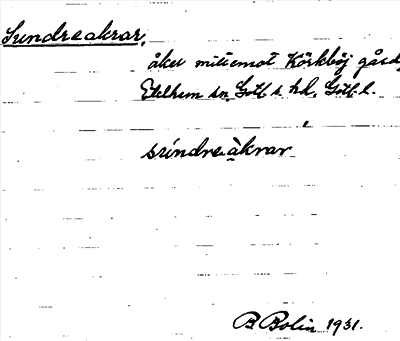 Sundreakrar,
åker mittemot Körkböj gård,
Etelhem sn, Gotl. s. hd, Gotl. l.
sündreàkrar
B Bolin 1931.